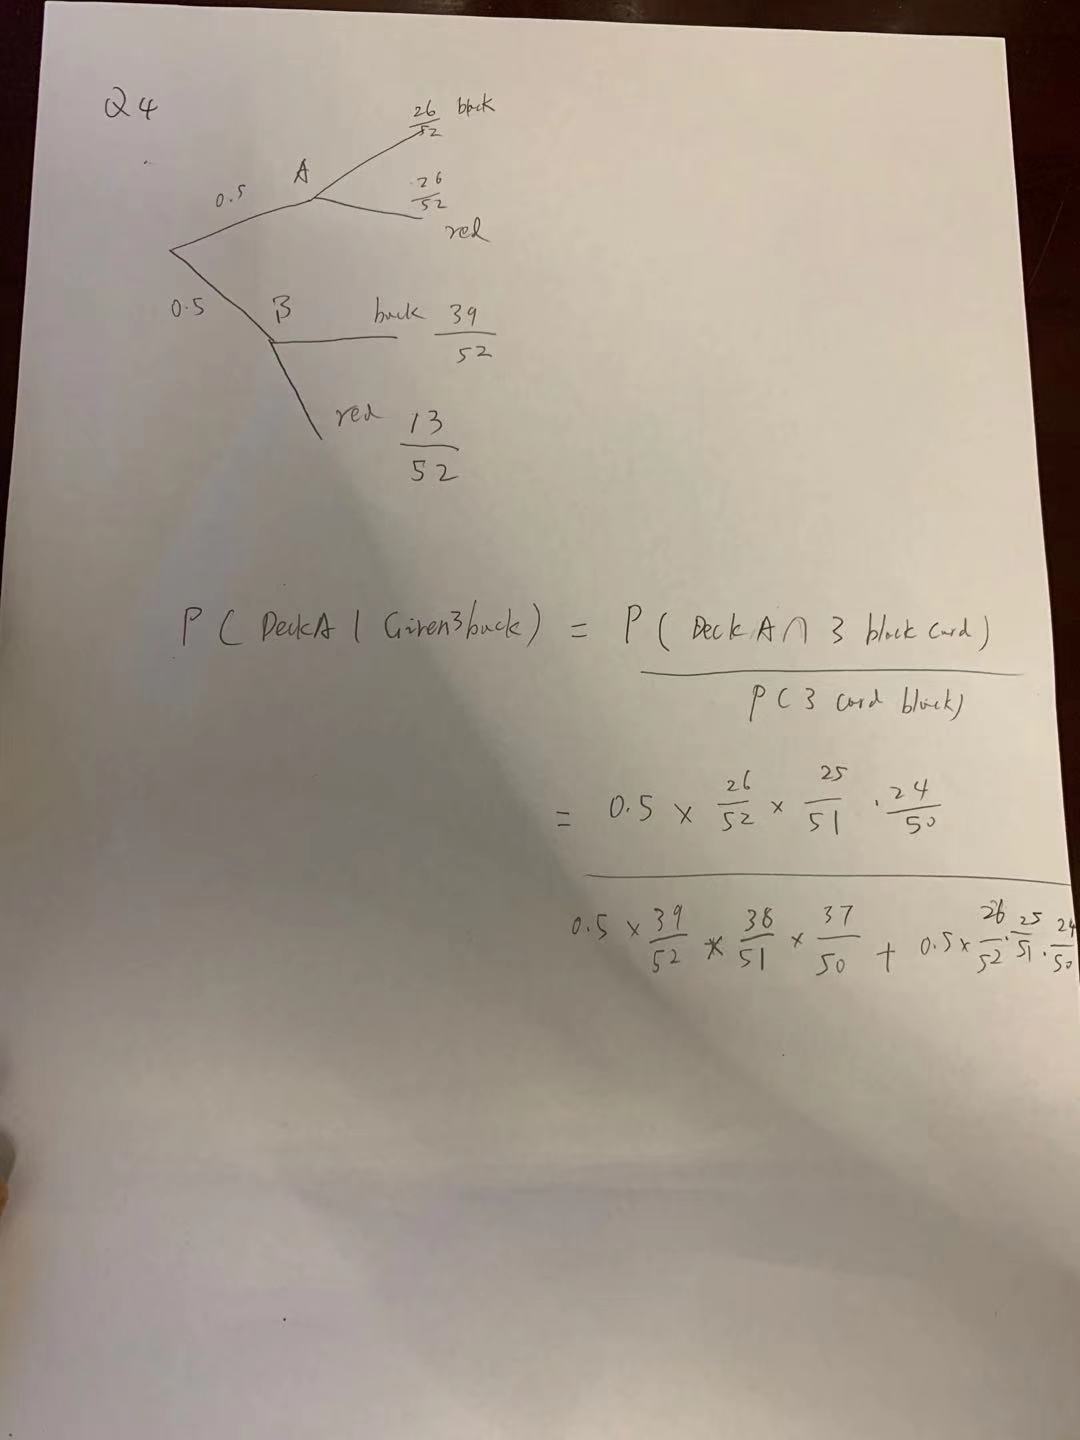 Q4
26/52 black
A
0.5
26/52
red
0.5
B
back 39/52
red 13/52
P ( Deck A | Given 3 back ) = P ( Deck A ∩ 3 black card )
P ( 3 card black )
= 0.5 × 26/52 × 25/51 · 24/50
0.5 × 39/52 × 38/51 × 37/50 + 0.5 × 26/52 · 25/51 · 24/50